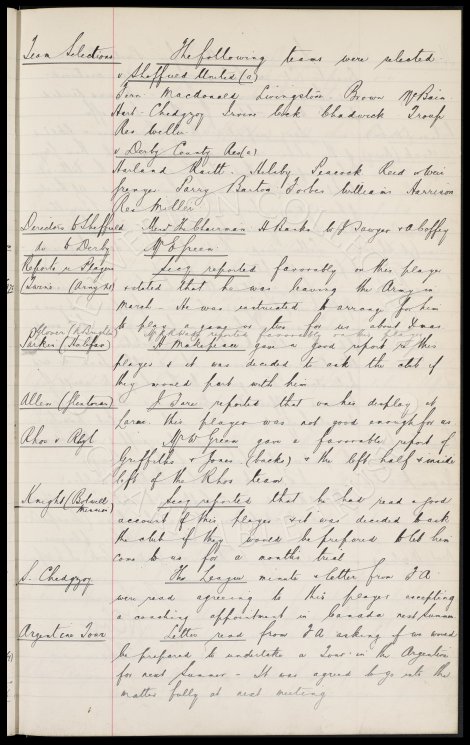 Team Selections The following teams were selected
v Sheffield United (a)
Fern Macdonald Livingstone Brown McBain
Hart Chedgzoy Irvine Cock Chadwick Troup
Res Weller
v Derby County Res (a)
Harland Raitt Peacock Reid Weir
Parry Barton Forbes Williams Harrison
Res Miller
Directors to Sheffield The Chairman H Banks W J Sawyer &
do to Derby Mr E Green
Reports re Players Secy reported favorably on this player
Irvine (Army) & stated that he was leaving the Army in
March He was instructed to arrange for him
to play a game or two for us about Xmas
Glover reported favorably on this
Parker (Halifax) H Makepeace gave a good report re this
player & it was decided to ask the club if
they would part with him
Allen reported that on his display at
this player was not good enough for us
Rhos v Mr W Green gave a favorable report of
Griffiths & Jones (backs) & the left half & inside
left of the Rhos team
Knight (Secy reported that he had read a good
account of this player & it was decided to ask
the club if they would be prepared to let him
come to us for a months trial
S. Chedgzoy The League minute & letter from F A
were read agreeing to this player accepting
a coaching appointment in Canada next Summer
Argentine Tour Letter read from F A asking if we would
be prepared to undertake a Tour in the Argentine
for next Summer - It was agreed to go into the
matter fully at next meeting